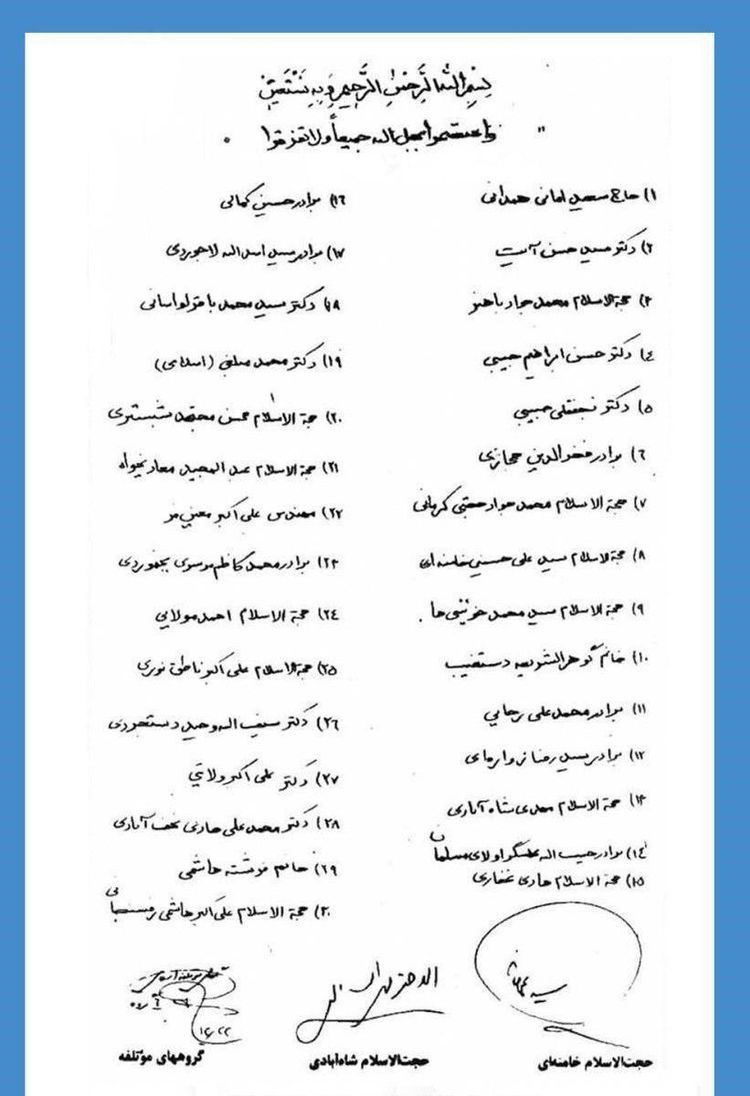 بِسْمِ اللهِ الرَّحْمٰنِ الرَّحِیمِ وَبِهِ نَسْتَعِینُ
" واعتصموا بحبل الله جمیعاً ولا تفرقوا "
۱) حاج سعید امانی همدانی
۲) دکتر سید حسن آیت
۳) حجةالاسلام محمد جواد باهنر
۴) دکتر حسن ابراهیم حبیبی
۵) دکتر نجفقلی حبیبی
۶) برادر فخرالدین حجازی
۷) حجة الاسلام محمد جواد حجتی کرمانی
۸) حجةالاسلام سید علی حسینی خامنه ای
۹) حجة الاسلام سید محمد خوئینی ها
۱۰) خانم گوهرالشریعه دستغیب
۱۱) برادر محمد علی رجایی
۱۲) برادر سید رضا زواره ای
۱۳) حجة الاسلام مهدی شاه آبادی
۱۴) برادر حبیب اله عسگراولادی مسلمان
۱۵) حجة الاسلام هادی غفاری
۱۶) برادر حسین کمالی
۱۷) برادر سید اسداله لاجوردی
۱۸) دکتر سید محمد باقر لواسانی
۱۹) دکتر محمد (اسلامی)
۲۰) حجة الاسلام محسن مجتهد شبستری
۲۱) حجة الاسلام عبدالمجید معادیخواه
۲۲) مهندس علی اکبر معین فر
۲۳) برادر محمد کاظم موسوی بجنوردی
۲۴) حجة الاسلام احمد مولایی
۲۵) حجةالاسلام علی اکبر ناطق نوری
۲۶) دکتر سیف اله وحید دستجردی
۲۷) دکتر علی اکبر ولایتی
۲۸) دکتر محمد علی هادی نجف آبادی
۲۹) خانم فرشته هاشمی
۳۰) حجة الاسلام علی اکبر هاشمی رفسنجانی
۱۲/۲۲
حجت‌الاسلام خامنه‌ای
حجت‌الاسلام شاه‌آبادی
گروههای مؤتلفه